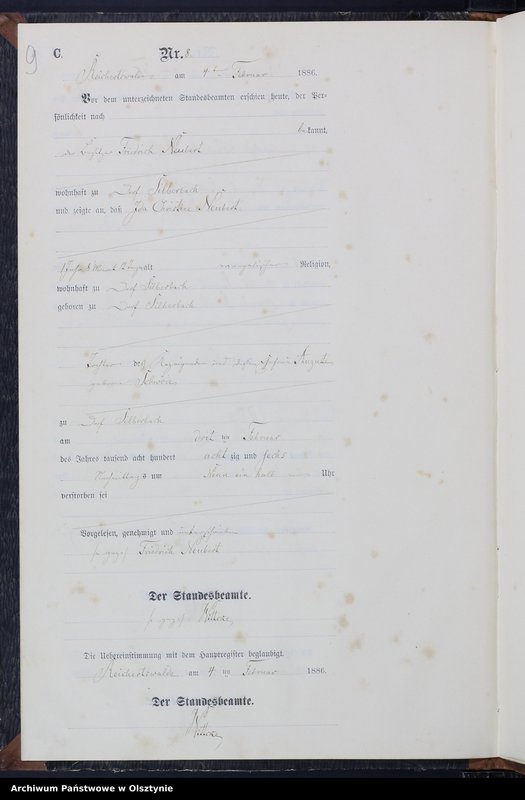 9
C. Nr. 8.
Reichertswalde am 4ten Februar 1886.
Vor dem unterzeichneten Standesbeamten erschien heute, der Per-
sönlichkeit nach
bekannt,
der Besitzer Friedrich Neubert
wohnhaft zu Dorf Silberbach
und zeigte an, daß Ida Christine Neubert
alt evangelischer Religion,
wohnhaft zu Dorf Silberbach
geboren zu Dorf Silberbach
Tochter des Anzeigenden und dessen Ehefrau Auguste
geborene
zu Dorf Silberbach
am dritten Februar
des Jahres tausend acht hundert achtzig und sechs
Nachmittags um Uhr
verstorben sei
Vorgelesen, genehmigt und unterschrieben
Friedrich Neubert
Der Standesbeamte.
Die Uebereinstimmung mit dem Hauptregister beglaubigt.
Reichertswalde am 4ten Februar 1886.
Der Standesbeamte.
Archiwum Państwowe w Olsztynie